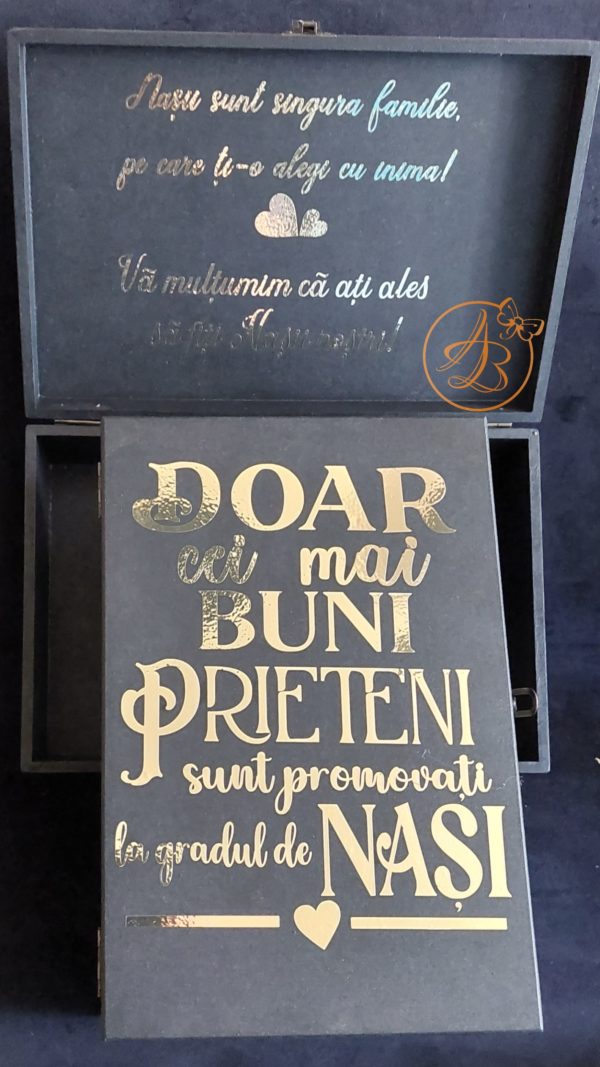 Nașii sunt singura familie,
pe care ți-o alegi cu inima!
Vă mulțumim că ați ales
să fiți Nașii noștri!
AB
DOAR
cei mai
BUNI
PRIETENI
sunt promovați
la gradul de NAȘI